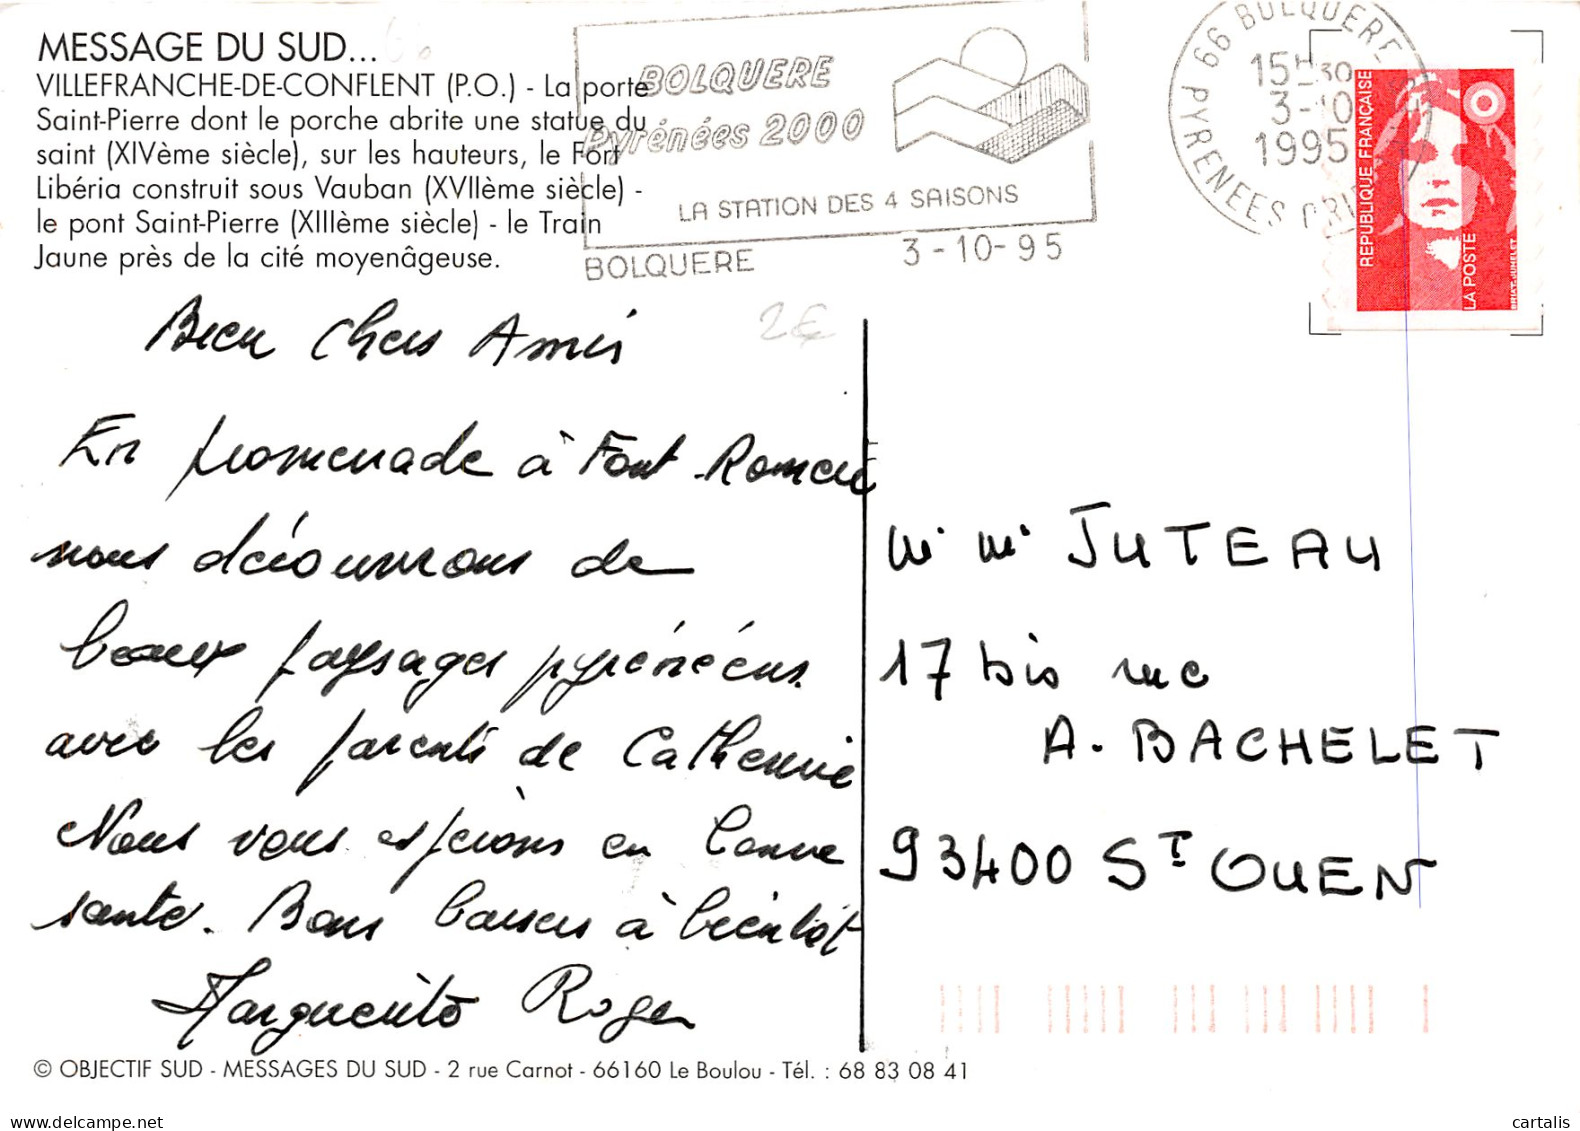 MESSAGE DU SUD...
VILLEFRANCHE-DE-CONFLENT (P.O.) - La porte
Saint-Pierre dont le porche abrite une statue du
saint (XIVème siècle), sur les hauteurs, le Fort
Libéria construit sous Vauban (XVIIème siècle) -
le pont Saint-Pierre (XIIIème siècle) - le Train
Jaune près de la cité moyenâgeuse.
BOLQUERE
Pyrénées 2000
LA STATION DES 4 SAISONS
BOLQUERE 3-10-95
66 BOLQUERE
15H30
3-10
1995
PYRENEES ORIENT
REPUBLIQUE FRANÇAISE
LA POSTE
BRIAT-JUMELET
2€
Bien chers Amis
En promenade à Font-Romeu
nous découvrons de
beaux paysages pyrénéens
avec les parents de Catherine
Nous vous espérons en bonne
santé. Bons baisers à bientôt
Marguerite Roger
M. M. JUTEAU
17 bis rue
A. BACHELET
93400 ST OUEN
© OBJECTIF SUD - MESSAGES DU SUD - 2 rue Carnot - 66160 Le Boulou - Tél. : 68 83 08 41
www.delcampe.net
cartalis